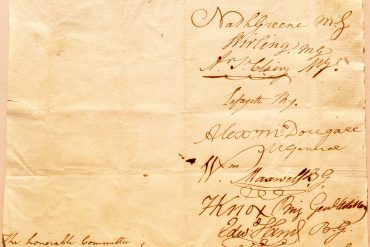 Nath Greene M G
Stirling. M G
Ar. St. Clair, M G
Lafayette M G.
Alexr McDougall
M General
Wm Maxwell B G
H Knox Brig Genl Artillery
Edwd Hand B. G.
The honorable Committee